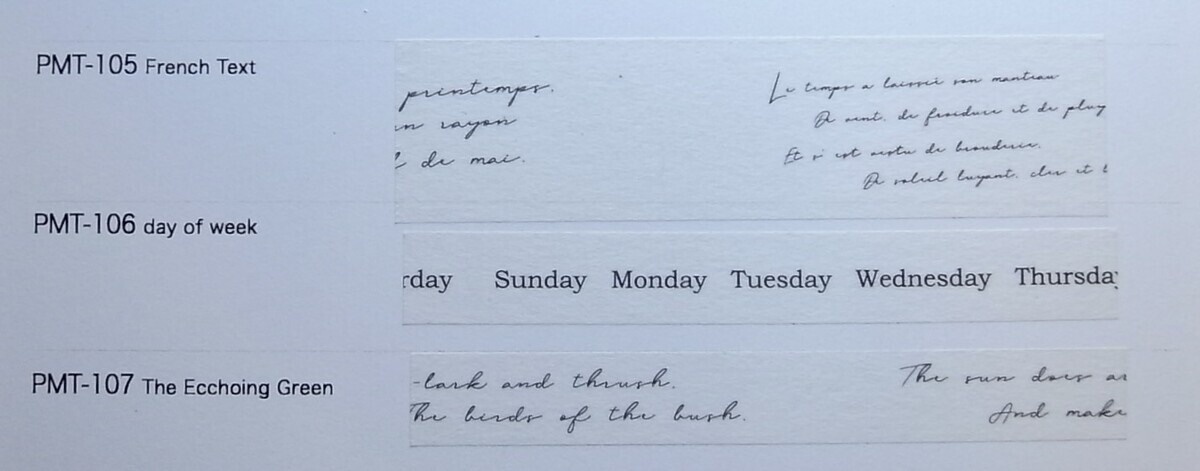 PMT-105 French Text
printemps.
un rayon
de mai.
Le temps a laissié son manteau
De vent, de froidure et de pluy
Et s'est vestu de brouderie,
De soleil luyant, cler et b
PMT-106 day of week
rday Sunday Monday Tuesday Wednesday Thursday
PMT-107 The Ecchoing Green
-lark and thrush.
The birds of the bush.
The sun does ar
And make